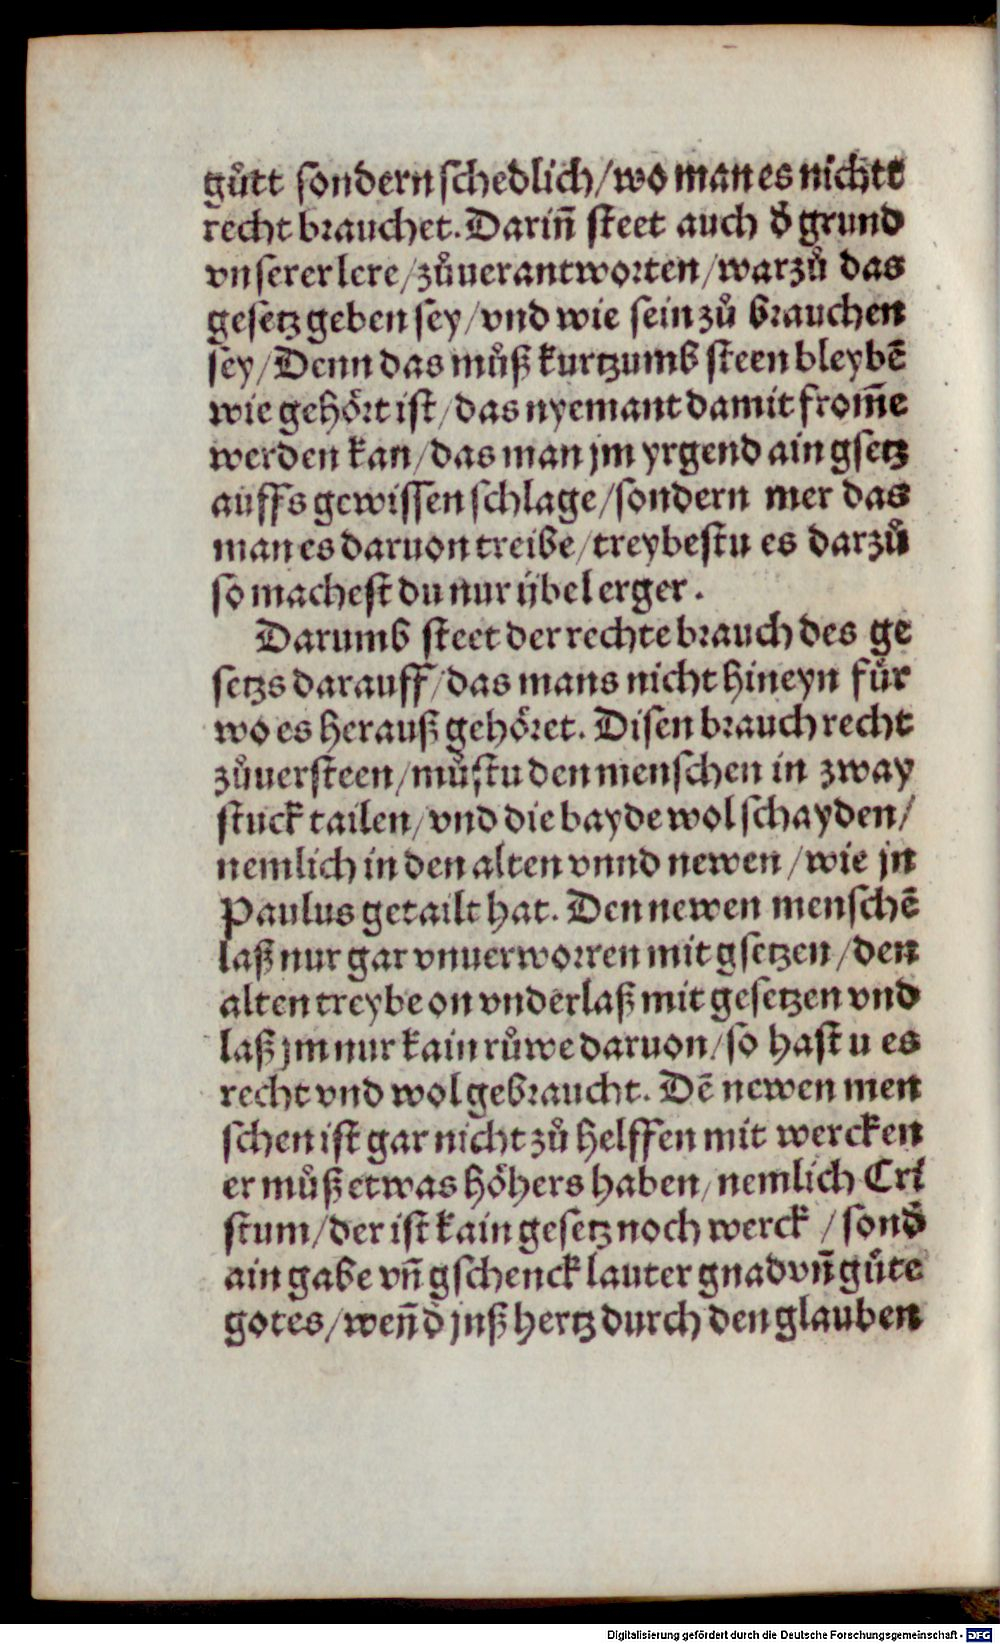 gůtt sondern schedlich/wo man es nichtt
recht brauchet. Dariñ steet auch ď grund
vnserer lere/zůuerantworten/warzů das
gesetz geben sey/vnd wie sein zů brauchen
sey/Denn das můß kurtzumb steen bleybē
wie gehört ist/das nyemant damit from̄e
werden kan/das man jm yrgend ain gsetz
auffs gewissen schlage/sondern mer das
man es daruon treibe/treybestu es darzů
so machest du nur übel erger.
Darumb steet der rechte brauch des ge
setzs darauff/das mans nicht hineyn für
wo es herauß gehöret. Disen brauch recht
zůuersteen/můstu den menschen in zway
stuck tailen/vnd die bayde wol schayden/
nemlich in den alten vnnd newen/wie jn
Paulus getailt hat. Den newen menschē
laß nur gar vnuerworren mit gsetzen/den
alten treybe on vnderlaß mit gesetzen vnd
laß jm nur kain růwe daruon/so hastu es
recht vnd wol gebraucht. Dē newen men
schen ist gar nicht zů helffen mit wercken
er můß etwas höhers haben/nemlich Cri
stum/der ist kain gesetz noch werck/sonď
ain gabe vñ gschenck lauter gnad vñ gůte
gotes/weñ ď jnß hertz durch den glauben
Digitalisierung gefördert durch die Deutsche Forschungsgemeinschaft - DFG